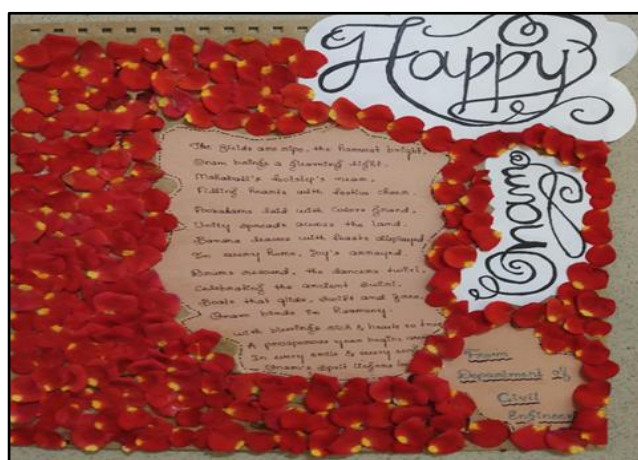 Happy
Onam
The fields are ripe, the harvest bright,
Onam brings a gleaming light.
Mahabali's footstep's near,
Filling hearts with festive cheer.
Pookalams laid with colors grand,
Unity spreads across the land.
Banana leaves with feasts displayed
In every home, joy's arrayed.
Drums resound, the dancers twirl,
Celebrating the ancient swirl.
Boats that glide, swift and free,
Onam binds in harmony.
With blessings rich & hearts so true
A prosperous year begins
In every smile & every
Onam's spirit
From
Department of
Civil